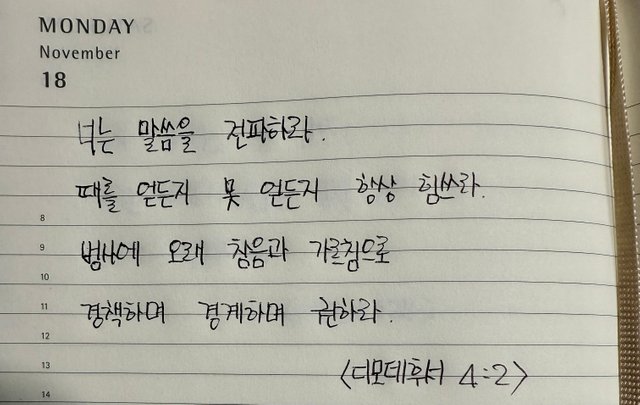 MONDAY
November
18
너는 말씀을 전파하라.
때를 얻든지 못 얻든지 항상 힘쓰라.
8
범사에 오래 참음과 가르침으로
9
10
경책하며 경계하며 권하라.
11
12
<디모데후서 4:2>
13
14